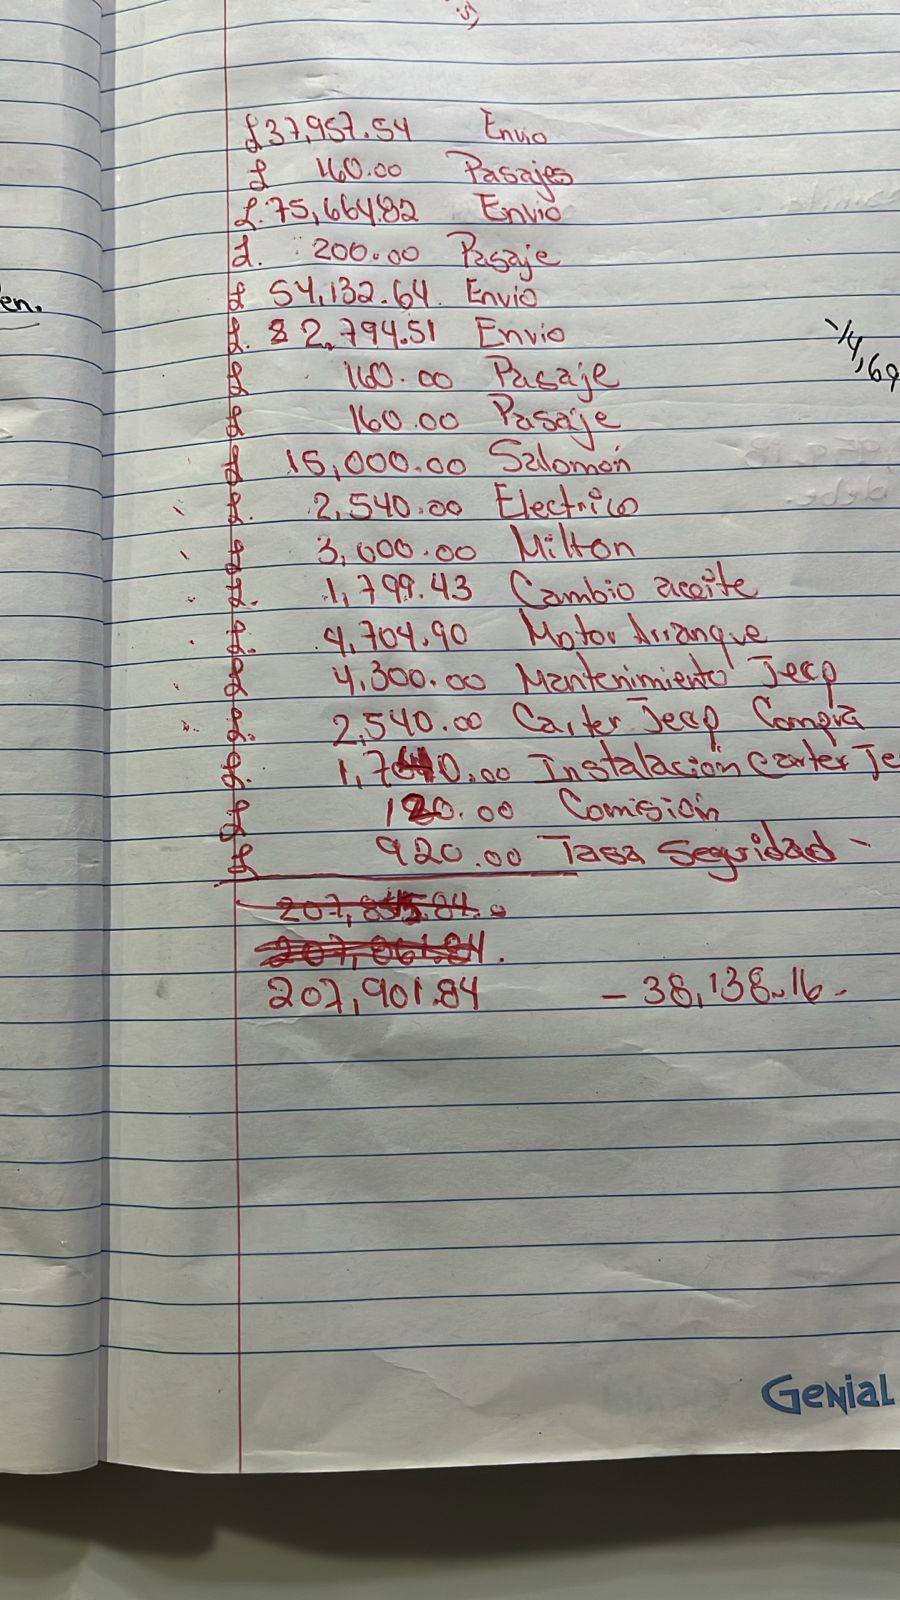 en.
£37,957.54 Envio
£ 160.00 Pasajes
£.75,664.82 Envio
£. 200.00 Pasaje
£ 54,132.64. Envio
£. 2,794.51 Envio
£ 160.00 Pasaje
£ 160.00 Pasaje
£ 15,000.00 Salomón
£. 2,540.00 Electrico
£ 3,600.00 Milton
£. 1,799.43 Cambio aceite
£. 4,704.90 Motor Arranque
£ 4,300.00 Mantenimiento Jeep
£. 2,540.00 Carter Jeep Compra
£. 00 Instalación Carter Je
£ 120.00 Comisión
£ 920.00 Tasa Seguridad -
207,901.84 - 38,138.16 -
Genial